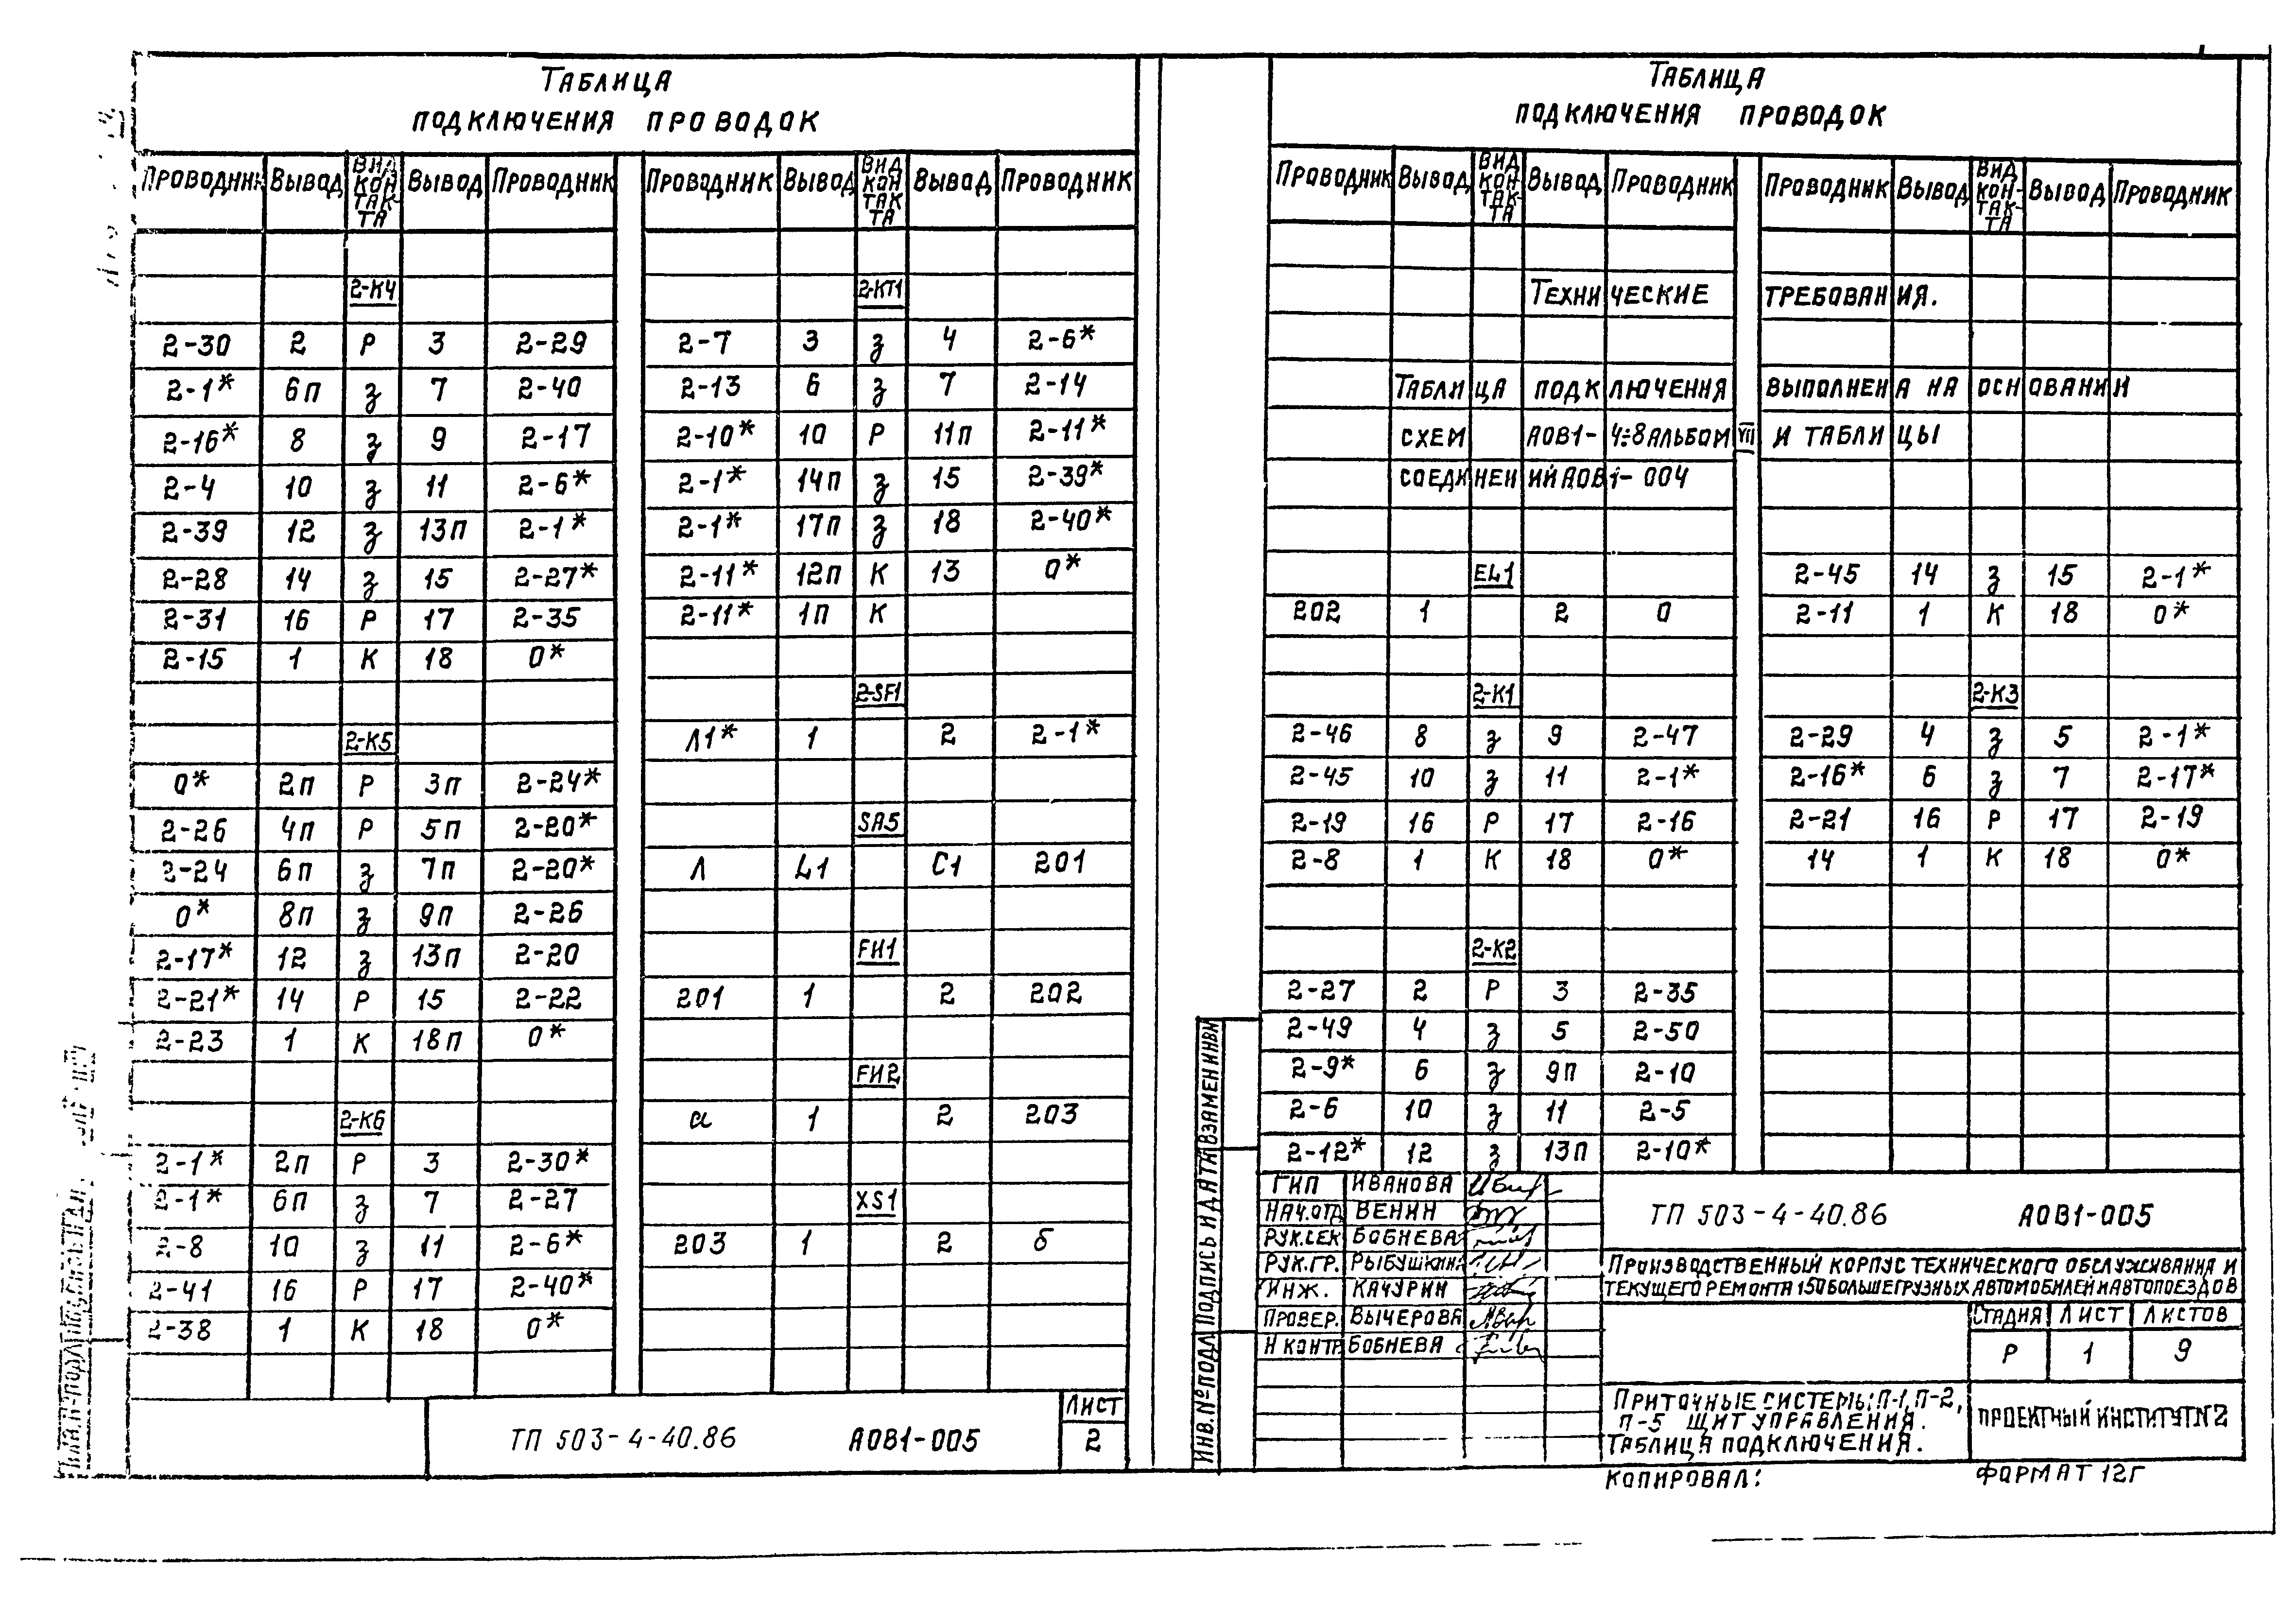 Таблица
подключения проводок
Проводник Вывод Вид контакта Вывод Проводник Проводник Вывод Вид контакта Вывод Проводник
2-К4 2-КТ1
2-30 2 Р 3 2-29 2-7 3 З 4 2-6*
2-1* 6П З 7 2-40 2-13 6 З 7 2-14
2-16* 8 З 9 2-17 2-10* 10 Р 11П 2-11*
2-4 10 З 11 2-6* 2-1* 14П З 15 2-39*
2-39 12 З 13П 2-1* 2-1* 17П З 18 2-40*
2-28 14 З 15 2-27* 2-11* 12П К 13 0*
2-31 16 Р 17 2-35 2-11* 1П К
2-15 1 К 18 0*
2-SF1
2-К5 Л1* 1 2 2-1*
0* 2П Р 3П 2-24*
2-26 4П Р 5П 2-20* SA5
2-24 6П З 7П 2-20* Л L1 C1 201
0* 8П З 9П 2-26
2-17* 12 З 13П 2-20 FИ1
2-21* 14 Р 15 2-22 201 1 2 202
2-23 1 К 18П 0*
FИ2
2-К6 а 1 2 203
2-1* 2П Р 3 2-30*
2-1* 6П З 7 2-27 XS1
2-8 10 З 11 2-6* 203 1 2 б
2-41 16 Р 17 2-40*
2-38 1 К 18 0*
ТП 503-4-40.86 АОВ1-005 Лист 2
Таблица
подключения проводок
Проводник Вывод Вид контакта Вывод Проводник Проводник Вывод Вид контакта Вывод Проводник
Технические требования.
Таблица подключения выполнена на основании
схем АОВ1-4÷8 альбом VII и таблицы
соединений АОВ1-004
EL1 2-45 14 З 15 2-1*
202 1 2 0 2-11 1 К 18 0*
2-К1 2-К3
2-46 8 З 9 2-47 2-29 4 З 5 2-1*
2-45 10 З 11 2-1* 2-16* 6 З 7 2-17*
2-19 16 Р 17 2-16 2-21 16 Р 17 2-19
2-8 1 К 18 0* 14 1 К 18 0*
2-К2
2-27 2 Р 3 2-35
2-49 4 З 5 2-50
2-9* 6 З 9П 2-10
2-6 10 З 11 2-5
2-12* 12 З 13П 2-10*
Инв.№подл Подпись и дата Взамен инв№
ГИП Иванова
Нач.отд Венин
Рук.сек Бобнева
Рук.гр. Рыбушкина
Инж. Качурин
Провер. Вычерова
Н контр Бобнева
ТП 503-4-40.86 АОВ1-005
Производственный корпус технического обслуживания и
текущего ремонта 150 большегрузных автомобилей и автопоездов
Стадия Лист Листов
Р 1 9
Приточные системы: П-1, П-2,
П-5 Щит управления.
Таблица подключения.
Проектный институт №2
Копировал: Формат 12Г